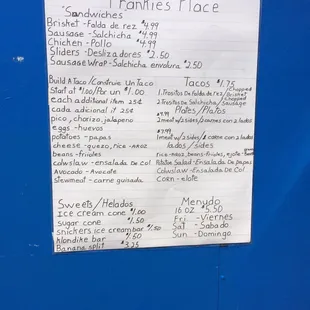 Frankies Place
Sandwiches
Brisket - Falda de rez $4.99
Sausage - Salchicha $4.99
Chicken - Pollo $4.99
Sliders - Deslizadores 2.50
Sausage Wrap - Salchicha envoltura $2.50
Build A Taco/Construir Un Taco
Start at $1.00/Por un $1.00
each additional item 25¢
cada adicional it 25¢
pico, chorizo, jalapeno
eggs - huevos
potatoes - papas
cheese - queso, rice - arroz
beans - frioles
coleslaw - ensalada De Col
Avocado - Avocate
Stewmeat - carne guisada
Tacos $1.75
1. Trositos De Falda de rez/Chopped Brisket
2. Trositos De Salchicha/Chopped Sausage
Plates/Platos
$9.99
2 meat w/2 sides/2 carnes con 2 lados
$7.99
1 meat w/2 sides/1 carne con 2 lados
lados/sides
rice - arroz, beans - frioles
Potatoe Salad - Ensalada De papas
Coleslaw - Ensalada De Col
Corn - elote
Sweets/Helados
Ice cream cone $1.00
sugar cone $1.50
snickers ice cream bar $1.50
klondike bar $1.50
Banana split $3.25
Menudo
16 oz $5.50
Fri - Viernes
Sat - Sabado
Sun - Domingo